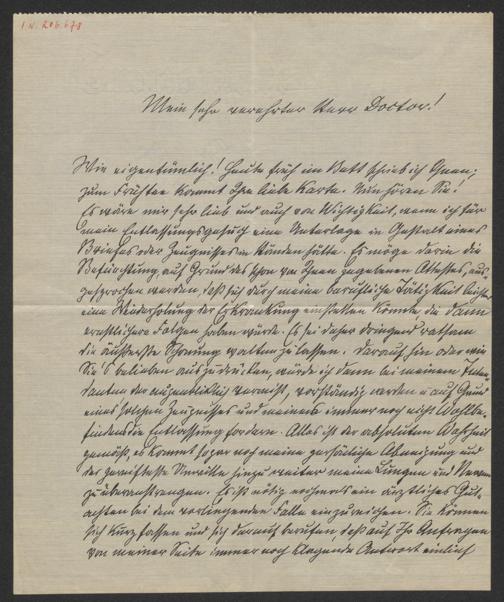 I.N. 206.678
Mein sehr verehrter Herr Doctor!
Wie eigentümlich! Heute früh im Bett schrieb ich Ihnen;
zum Frühstück kommt Ihre liebe Karte. Nun hören Sie!
Es wäre mir sehr lieb und auch von Wichtigkeit, wenn ich für
mein Entlassungsgesuch eine Unterlage in Gestalt eines
Briefes oder Zeugnisses in Händen hätte. Es möge darin die
Befürchtung auf Grund des schon von Ihnen gegebenen Attestes, aus-
gesprochen werden, daß sich durch meine berufliche Tätigkeit leicht
eine Wiederholung der Erkrankung einstellen könnte, die dann
ernstlichere Folgen haben würde. Es sei daher dringend ratsam
die äußerste Schonung walten zu lassen. Daraufhin oder wie
Sie's belieben auszudrücken, würde ich dann bei meinem Inten-
danten der augenblicklich verreist, vorständig werden u auf Grund
eines solchen Zeugnisses und meines immer noch nicht Wohlbe-
findens die Entlassung fordern. Alles ist der absoluten Wahrheit
gemäß, es kommt sogar noch meine persönliche Abneigung und
der Unwille hinzu weiter meine Lungen und Nerven
zu überanstrengen. Es ist nötig nochmals ein ärztliches Gut-
achten bei dem vorliegenden Falle einzureichen. Sie können
sich kurz fassen und sich darauf berufen, daß auf Ihr Anfragen
von meiner Seite immer noch klagende Antwort einlief